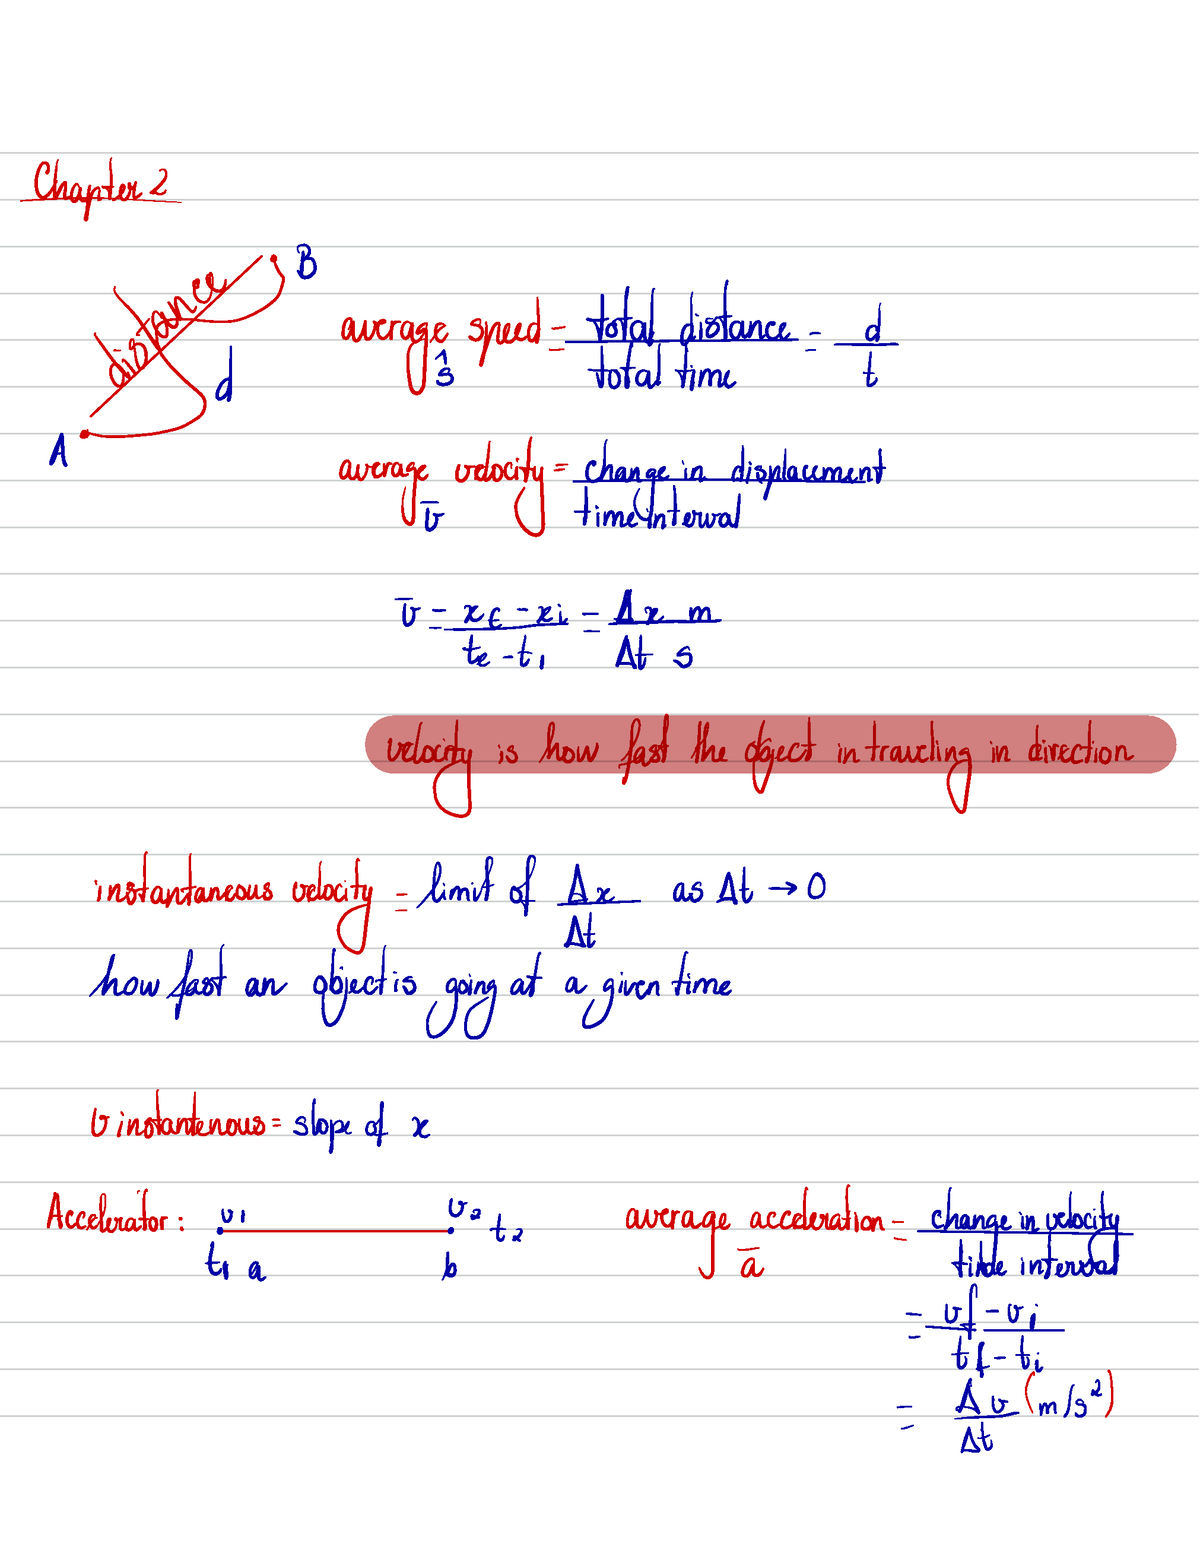 Chapter 2
B
distance
d
A
average speed = total distance / total time = d / t
ŝ
average velocity = change in displacement / time interval
v̄
v̄ = xf - xi / t2 - t1 = Δx m / Δt s
velocity is how fast the object in traveling in direction
instantaneous velocity = limit of Δx / Δt as Δt → 0
how fast an object is going at a given time
v instantenous = slope of x
Accelerator: v1 v2 t2
t1 a b
average acceleration = change in velocity / time interval
ā
= vf - vi / tf - ti
= Δv / Δt (m/s²)